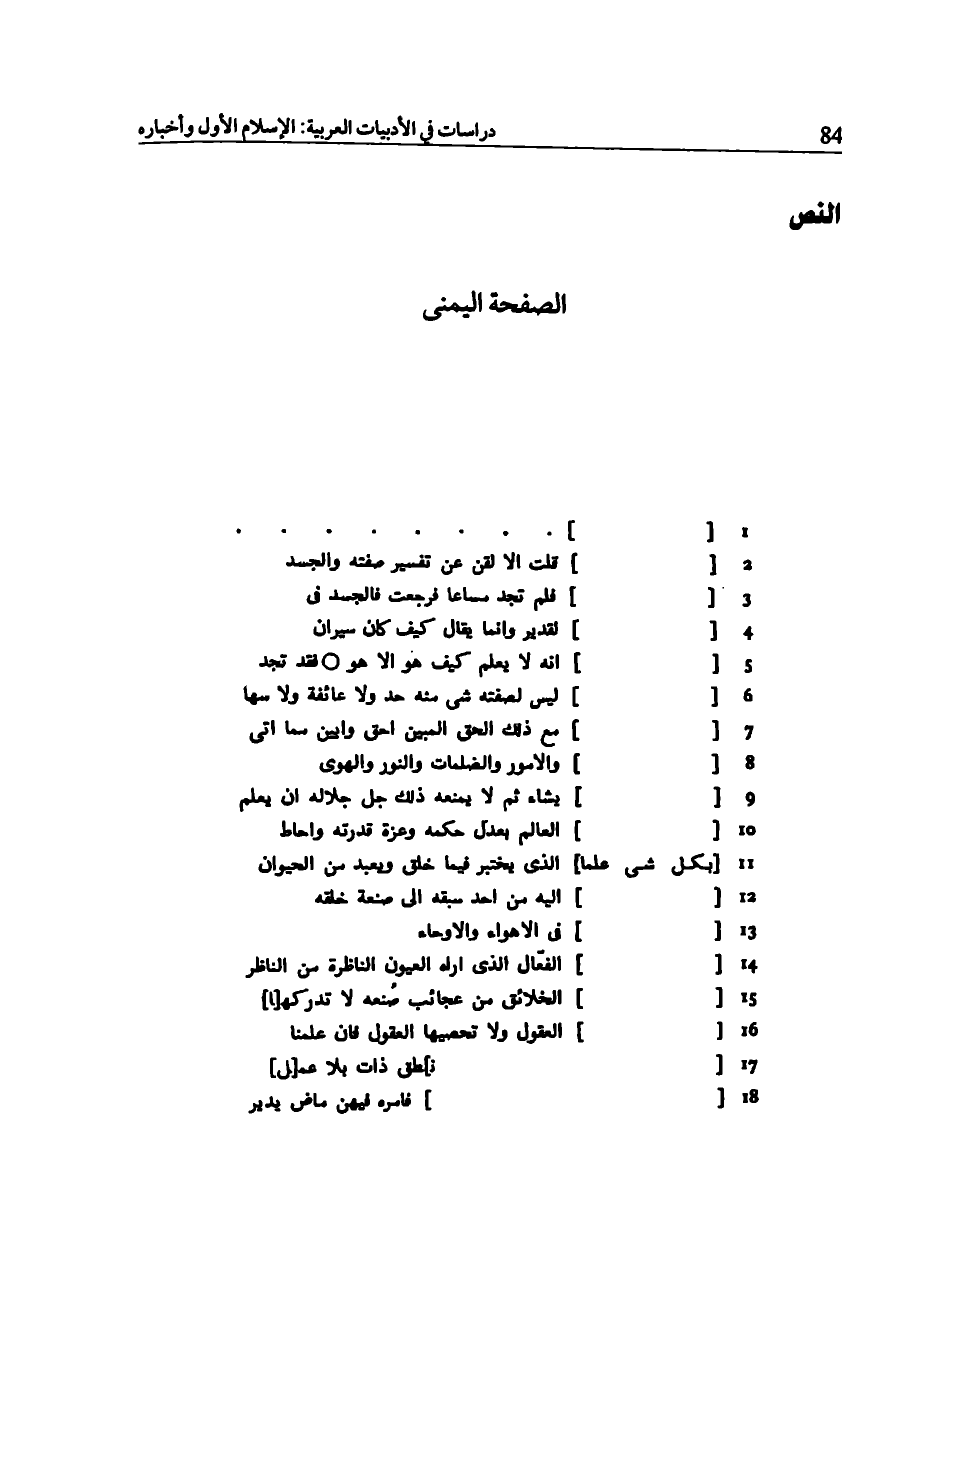 84 دراسات في الأدبيات العربية: الإسلام الأول وأخباره
النص
الصفحة اليمنى
1 [ ] . . . . . . . .
2 [ ] قلت الا لقن عن تفسير صفته والجسد
3 [ ] فلم تجد مساعا فرجعت فالجسد فى
4 [ ] لقدير وانما يقال كيف كان سيران
5 [ ] انه لا يعلم كيف هو الا هو ○ فقد تجد
6 [ ] ليس لصفته شى منه حد ولا عائفة ولا سها
7 [ ] مع ذلك الحق المبين احق وابين مما اتى
8 [ ] والامور والضلمات والنور والهوى
9 [ ] يشاء ثم لا يمنعه ذلك جل جلاله ان يعلم
10 [ ] العالم بعدل حكمه وعزة قدرته واحاط
11 [بكل شى علما] الذى يختبر فيما خلق ويعبد من الحيوان
12 [ ] اليه من احد سبقه الى صنعة خلقه
13 [ ] فى الاهواء والاوحاء
14 [ ] الفعّال الذى اراه العيون الناظرة من الناظر
15 [ ] الخلائق من عجائب صُنعه لا تدركها[ا]
16 [ ] العقول ولا تحصيها العقول فان علمنا
17 [ ن]اطق ذات بلا عم[ل]
18 [ ] فامره فيهن ماض يدير